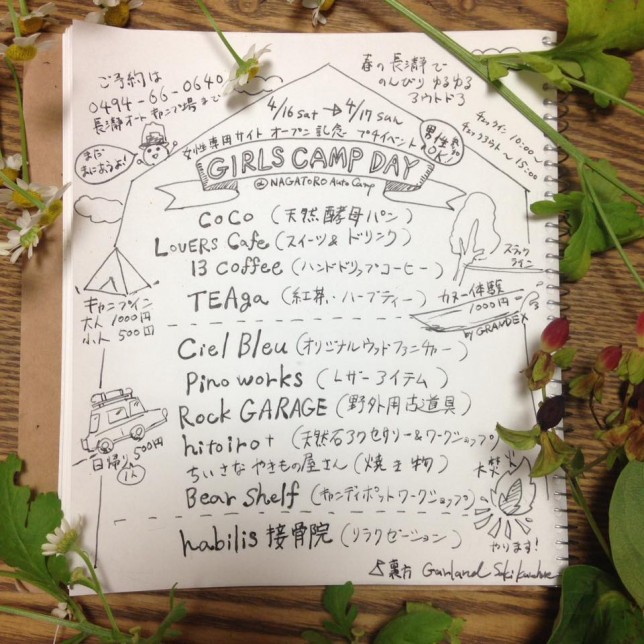 ご予約は
0494-66-0640
長瀞オートキャンプ場まで
春の長瀞で
のんびりゆるゆる
アウトドア
まだ
まにあうよ!
4/16 sat → 4/17 sun
女性専用サイト オープン記念 プチイベント
男性も
OK
チェックイン 10:00~
チェックアウト ~15:00
GIRLS CAMP DAY
@ NAGATORO Auto Camp
CoCo (天然酵母パン)
LOVERS Cafe (スイーツ & ドリンク)
13 coffee (ハンドドリップコーヒー)
TEAga (紅茶・ハーブティー)
スラック
ライン
カヌー体験
1000円
by GRANDEX
キャンプイン
大人 1000円
小人 500円
Ciel Bleu (オリジナルウッドファニチャー)
Pino works (レザーアイテム)
Rock GARAGE (野外用古道具)
hitoiro+ (天然石アクセサリー&ワークショップ)
ちいさなやきもの屋さん (焼き物)
Bear Shelf (キャンディポットワークショップ)
日帰り 500円
1人
habilis 接骨院 (リラクゼーション)
焚火
やります!
裏方 Garland